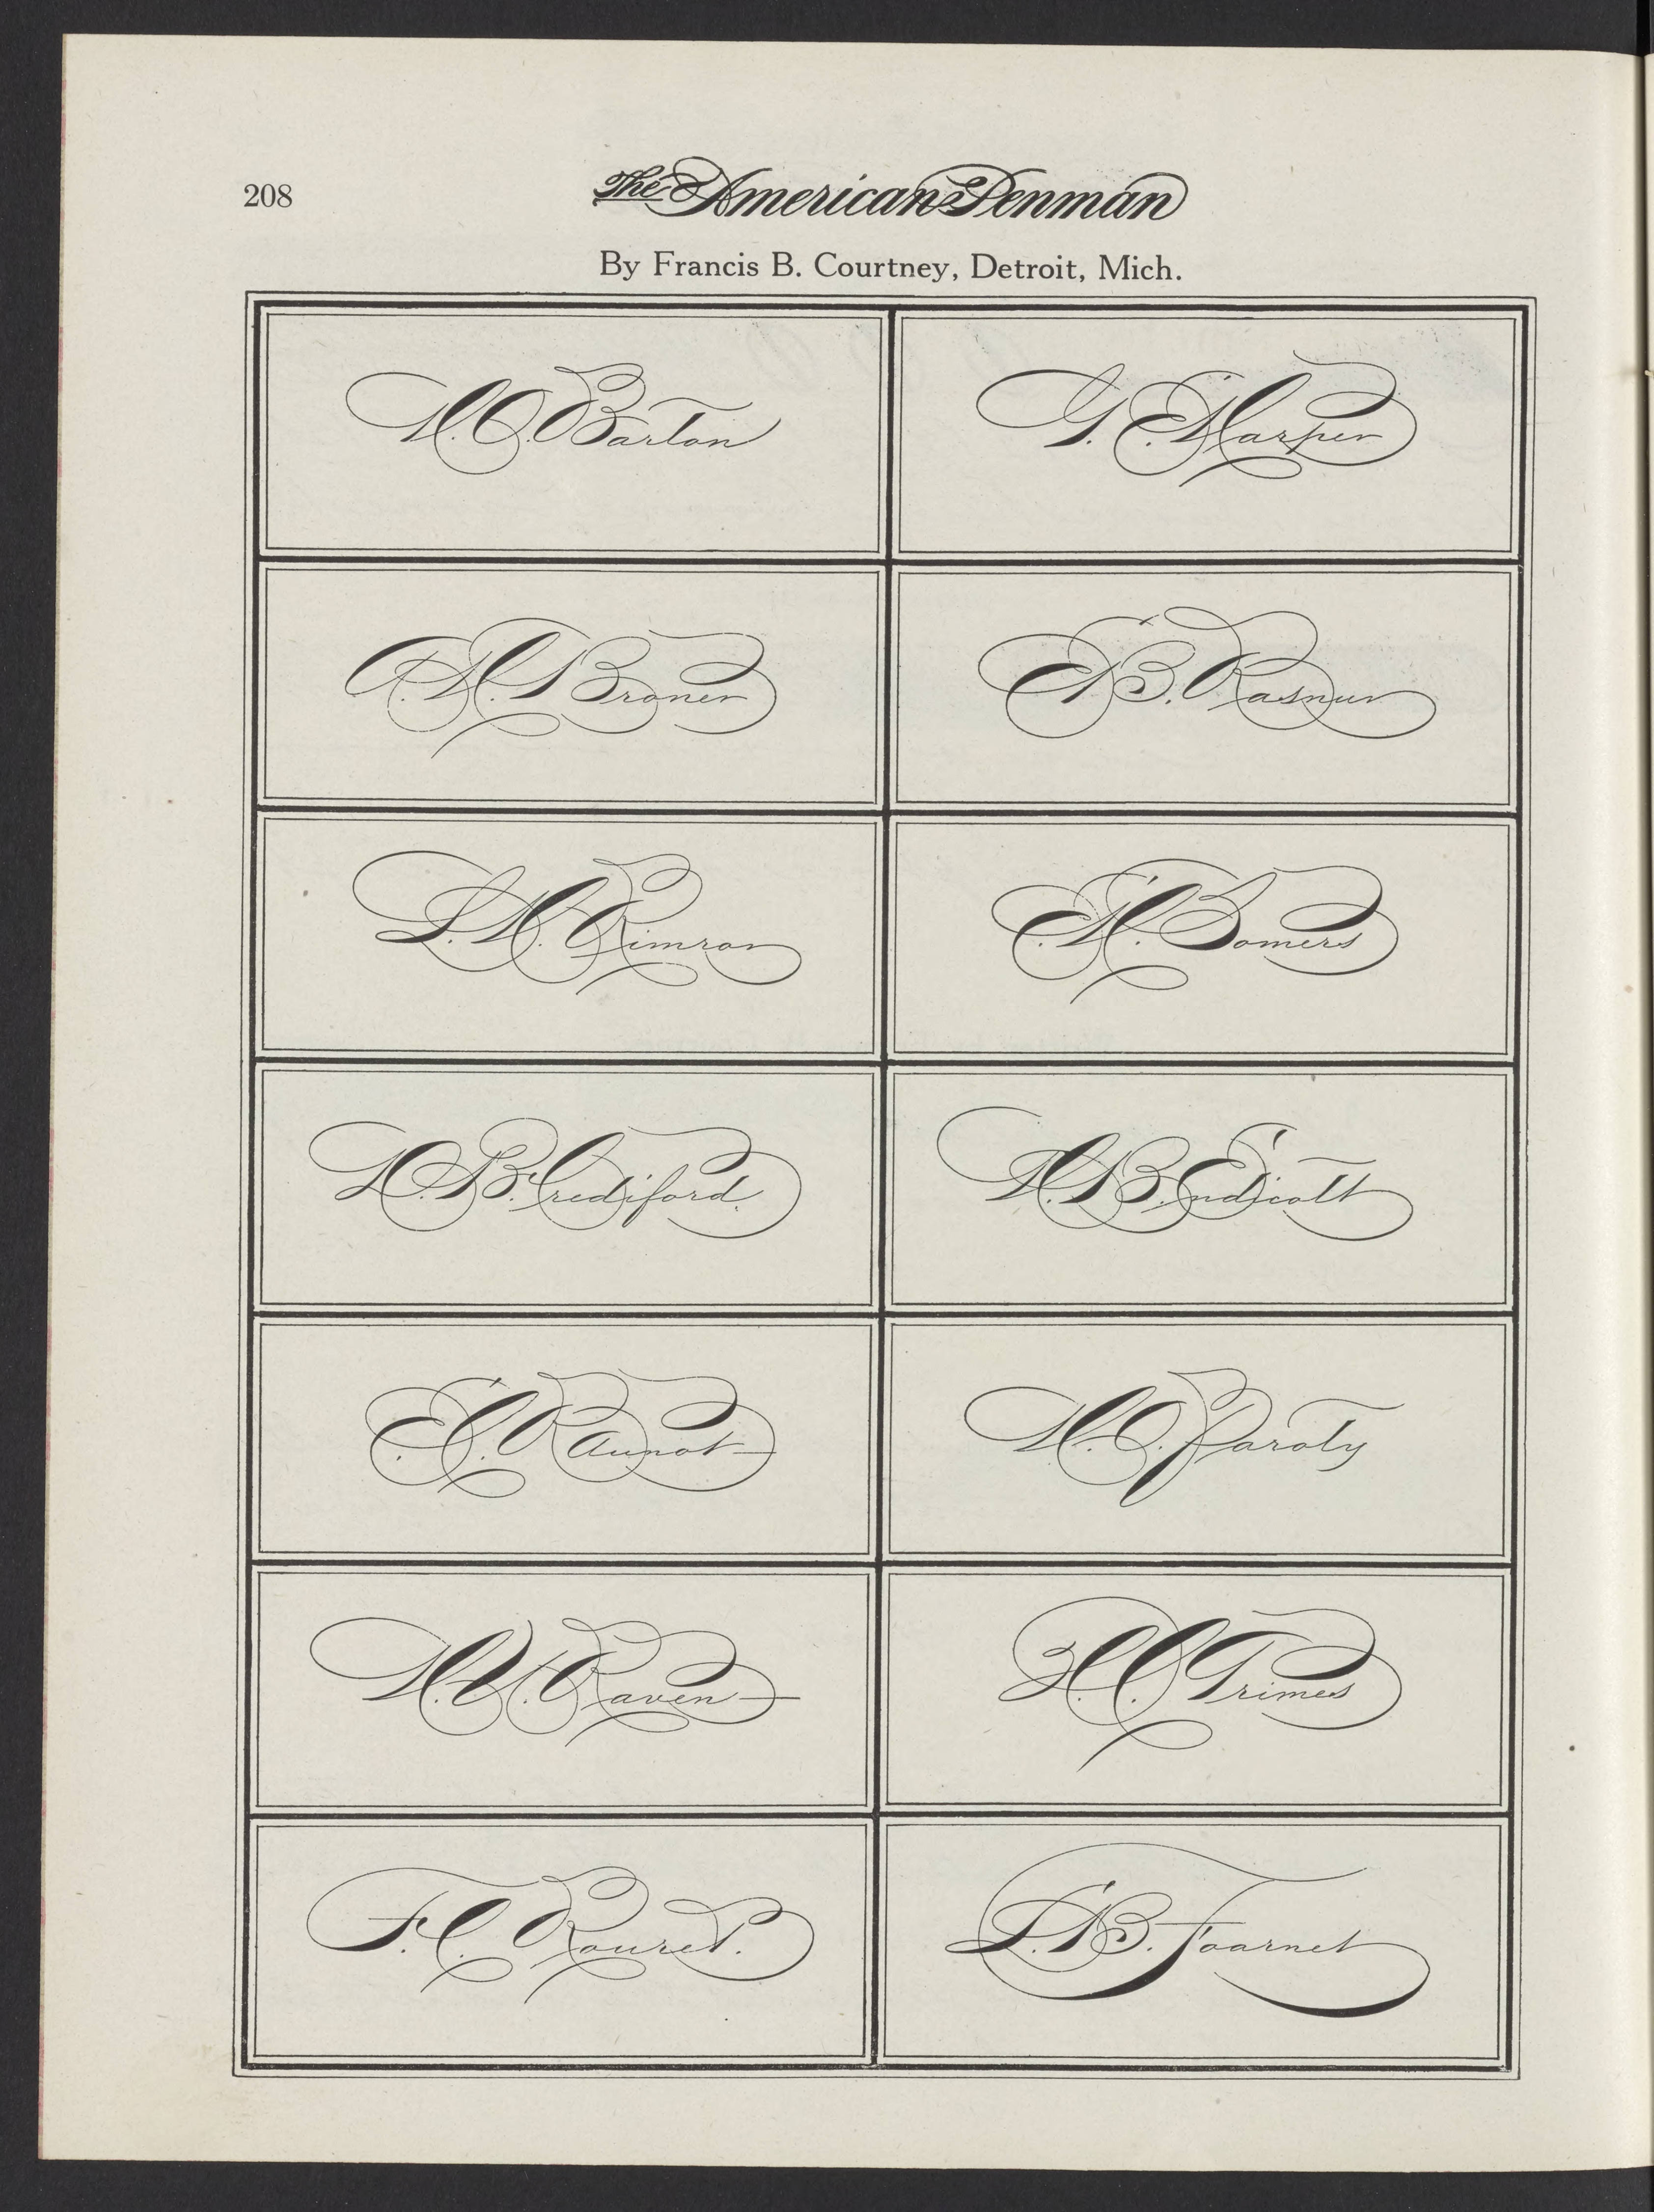 208
The American Penman
By Francis B. Courtney, Detroit, Mich.
Barton
G. E. Harper
A. H. Broner
E. B. Rasmur
L. H. Rimron
E. H. Somers
B. Crediford.
H. B. Endicott
E. C. Raunot
H. O. Paroty
H. U. Raven
H. C. Grimes
F. C. Rouret.
L. B. Foarnet